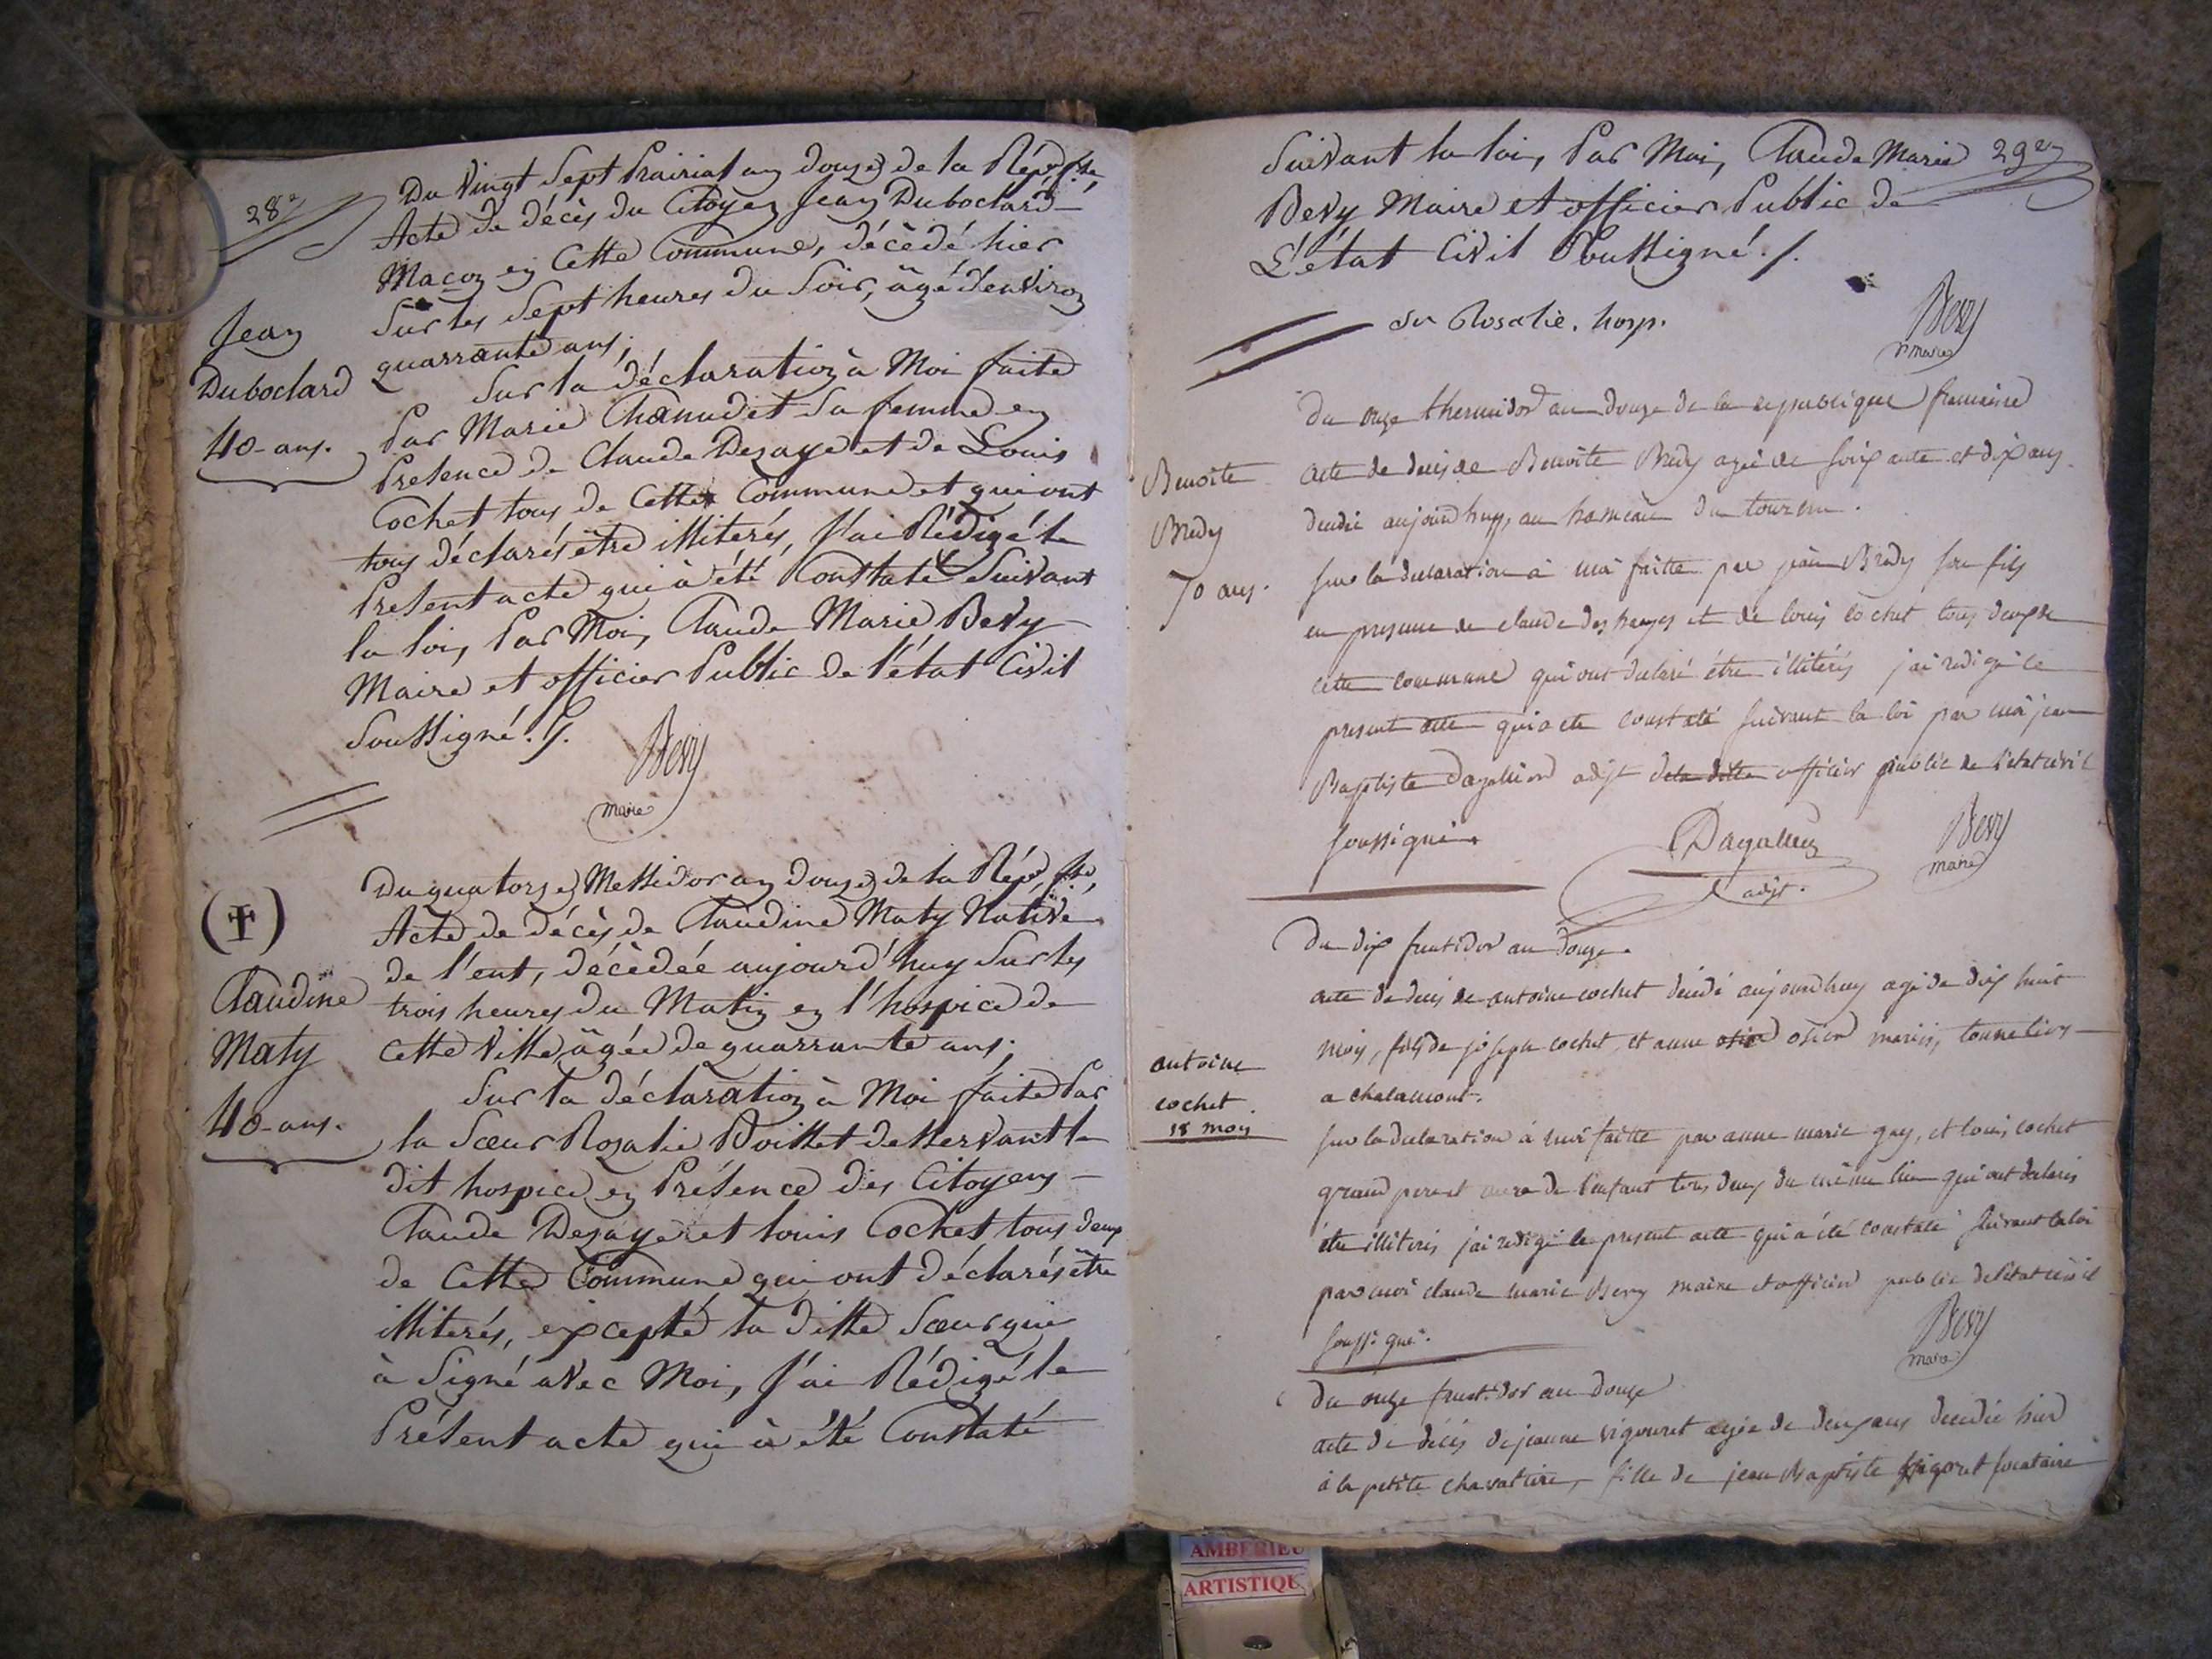 28e
Du Vingt Sept Prairial an douze de la Rép. fse,
Acte de décès du Citoyen Jean Duboclard
Maçon en Cette Commune, décédé hier
Sur les Sept heures du Soir, âgé d'environ
quarrante ans;
Jean
Duboclard
40 - ans.
Sur la déclaration à Moi faite
Par Marie Chanudet Sa femme en
Présence de Claude Desaye et de Louis
Cochet tous de Cette Commune et qui ont
tous déclarés être illiterés, J'ai Rédigé le
Présent acte qui à été Constaté Suivant
la loi, Par Moi, Claude Marie Bevy
Maire et officier Public de l'état Civil
Soussigné. /.
Bevy
maire
Du quatorze Messidor an douze de la Rép. fse,
Acte de décès de Claudine Maty Native
de l'ent, décédée aujourd'huy Sur les
trois heures du Matin en l'hospice de
Cette Ville âgée de quarrante ans;
Claudine
Maty
40 - ans.
Sur la déclaration à Moi faite Par
la Sœur Rosalie Boittet desservant le
dit hospice en Présence des Citoyens
Claude Desaye et louis Cochet, tous deux
de Cette Commune qui ont déclarés être
illiterés, excepté la ditte Sœur qui
à Signé avec Moi, J'ai Rédigé le
Présent acte qui à été Constaté
29e
Suivant la loi, Par Moi, Claude Marie
Bevy Maire et officier Public de
L'état Civil Soussigné. /.
Sr Rosalie. hosp.
Bevy
maire
Du onze thermidor an douze de la republique francaise
Benoite
Bredy
70 ans.
acte de deces de Benoite Bredy agée de soixante et dix ans
decedée aujourdhuy, au hameau du
sur la declaration à moi faitte par jean Bredy son fils
en presence de claude deshayes et de louis cochet tous deux de
cette commune qui ont declaré être illitérés j'ai redigé le
present acte qui a ete constaté suivant la loi par moi jean
Baptiste Dagallier adjt de la ditte officier public de l'etat civil
soussigné.
Dagallier
adjt.
Bevy
maire
Du dix fructidor an douze.
acte de deces de antoine cochet decedé aujourdhuy agé de dix huit
mois, fils de joseph cochet, et anne osier mariés, tonneliers
a chalamont.
antoine
cochet
18 mois
sur la declaration à moi faitte par anne marie guy, et louis cochet
grand pere et mere de l'enfant tous deux du même lieu qui ont declarés
être illiterés j'ai redigé le present acte qui a été constaté suivant la loi
par moi claude marie Bevy maire et officier public de l'etat civil
soussigné.
Bevy
maire
du onze fructidor an douze
acte de décés de jeanne vigouret agée de deux ans decedée hier
à la petite chavattiere, fille de jean Baptiste vigoret locataire
AMBERIEU
ARTISTIQU